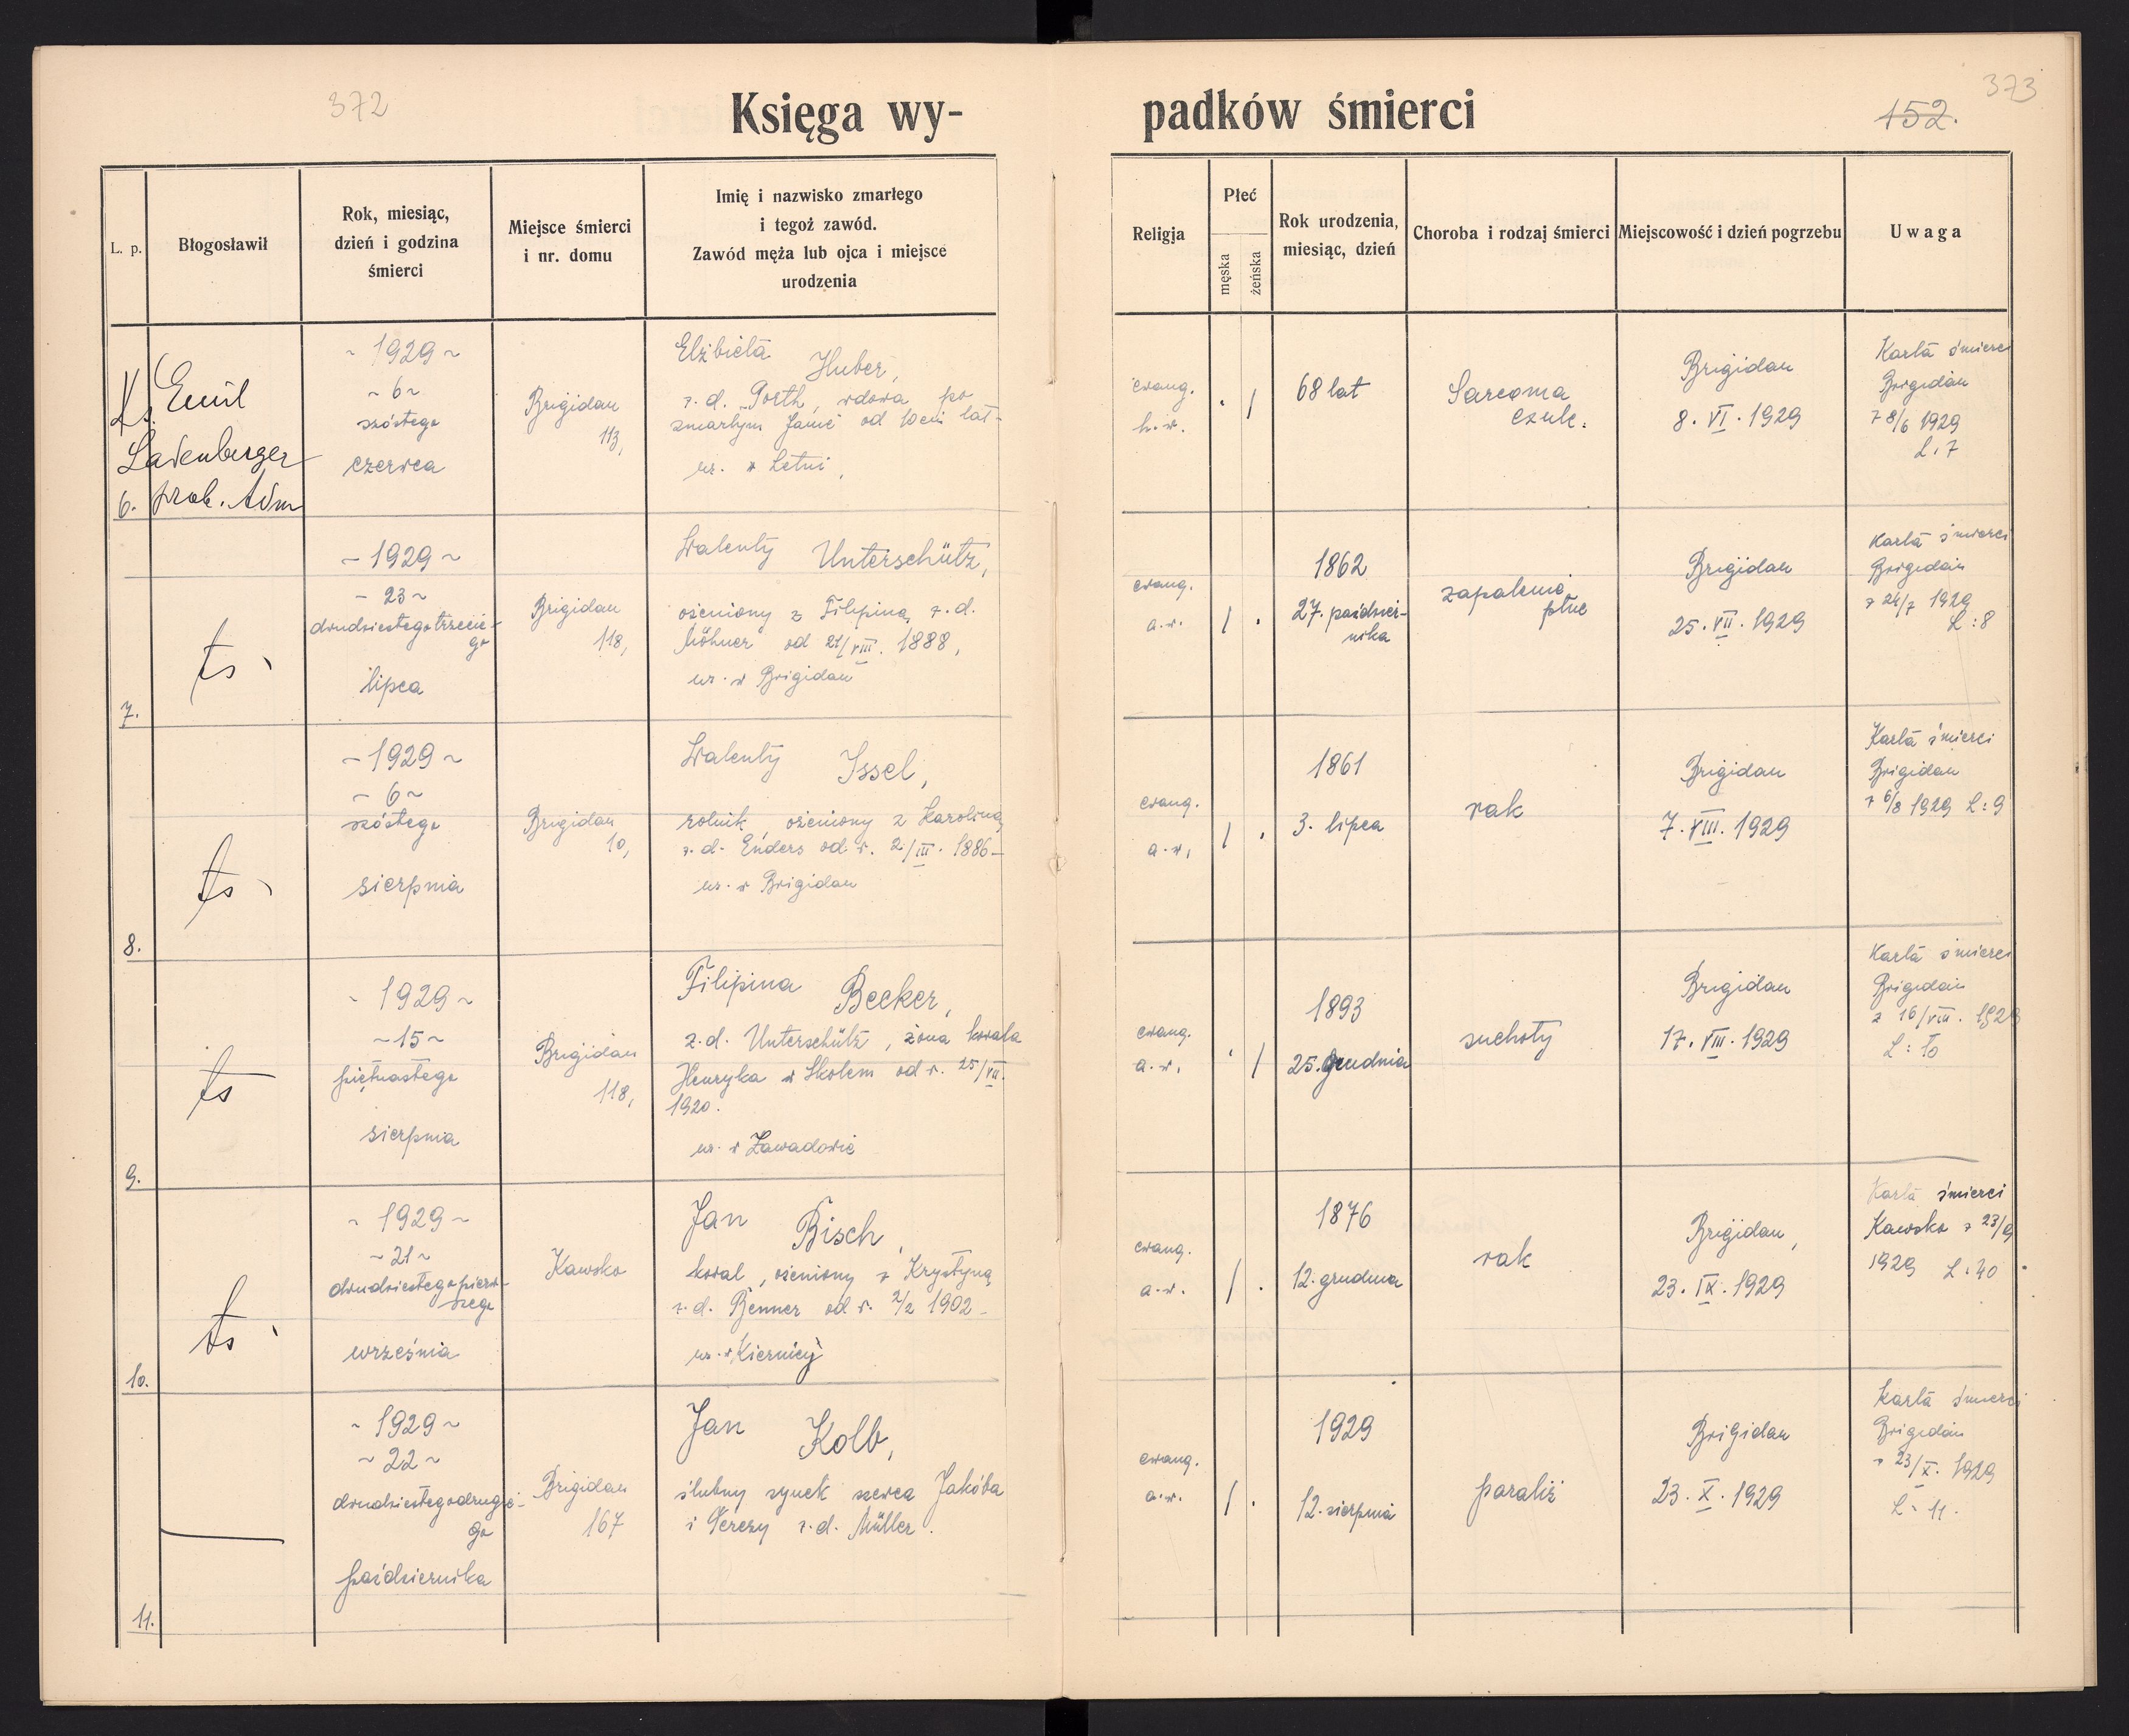 372
373
152.
Księga wy-
padków śmierci
L. p.
Błogosławił
Rok, miesiąc,
dzień i godzina
śmierci
Miejsce śmierci
i nr. domu
Imię i nazwisko zmarłego
i tegoż zawód.
Zawód męża lub ojca i miejsce
urodzenia
Religja
Płeć
męska
żeńska
Rok urodzenia,
miesiąc, dzień
Choroba i rodzaj śmierci
Miejscowość i dzień pogrzebu
Uwaga
6.
Ks. Emil
Ladenberger
prob. Adm
- 1929 -
- 6 -
szóstego
czerwca
Brigidau
113,
Elżbieta
Huber,
z. d. Porth, wdowa po
zmarłym Janie od lat-
ur. w Letni,
ewang.
h. w.
. /
68 lat
Sarcoma
Brigidau
8. VI. 1929
Karta śmierci
Brigidau
z 8/6 1929
L. 7
7.
ts
- 1929 -
- 23 -
dwudziestego trzecie-
go
lipca
Brigidau
118,
Walenty Unterschütz,
ożeniony z Filipiną z. d.
Möhner od 21/VIII. 1888,
ur. w Brigidau
ewang.
a. w.
/ .
1862
27. paździer-
nika
zapalenie
płuc
Brigidau
25. VII. 1929
Karta śmierci
Brigidau
z 24/7 1929
L: 8
8.
ts
- 1929 -
- 6 -
szóstego
sierpnia
Brigidau
10,
Walenty Issel,
rolnik, ożeniony z Karoliną
z. d. Enders od r. 2/III. 1886-
ur. w Brigidau
ewang.
a. w.
/ .
1861
3. lipca
rak
Brigidau
7. VIII. 1929
Karta śmierci
Brigidau
z 6/8 1929 L: 9
9.
ts
- 1929 -
- 15 -
piętnastego
sierpnia
Brigidau
118,
Filipina Becker,
z. d. Unterschütz, żona kowala
Henryka w Skolem od r. 25/VII.
1920.
ur. w Zawadowie
ewang.
a. w.
. /
1893
25. grudnia
suchoty
Brigidau
17. VIII. 1929
Karta śmierci
Brigidau
z 16/VIII. 1929
L: 10
10.
ts
- 1929 -
- 21 -
dwudziestego pierw-
szego
września
Kawsko
Jan Bisch,
kowal, ożeniony z Krystyną
z. d. Benner od r. 2/2 1902-
ur. w Kiernicy
ewang.
a. w.
/ .
1876
12. grudnia
rak
Brigidau,
23. IX. 1929
Karta śmierci
Kawsko z 23/9
1929 L: 40
11.
- 1929 -
- 22 -
dwudziestego drugie-
go
października
Brigidau
167
Jan Kolb,
ślubny synek szewca Jakóba
i Terezy z. d. Müller.
ewang.
a. w.
/ .
1929
12. sierpnia
paraliż
Brigidau
23. X. 1929
Karta śmierci
Brigidau
z 23/X. 1929
L. 11.